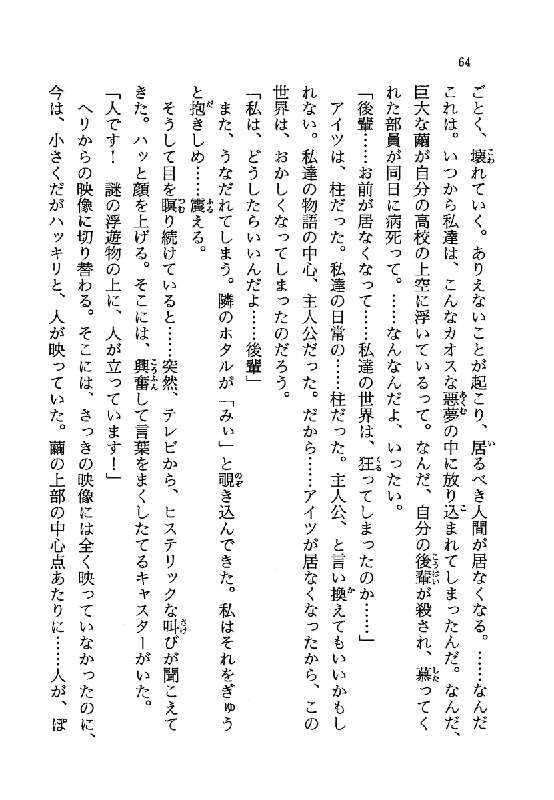 64
ごとく、壊れていく。ありえないことが起こり、居るべき人間が居なくなる。……なんだ
これは。いつから私達は、こんなカオスな悪夢の中に放り込まれてしまったんだ。なんだ、
巨大な繭が自分の高校の上空に浮いているって。なんだ、自分の後輩が殺され、慕ってく
れた部員が同日に病死って。……なんなんだよ、いったい。
「後輩……お前が居なくなって……私達の世界は、狂ってしまったのか……」
アイツは、柱だった。私達の日常の……柱だった。主人公、と言い換えてもいいかもし
れない。私達の物語の中心、主人公だった。だから……アイツが居なくなったから、この
世界は、おかしくなってしまったのだろう。
「私は、どうしたらいいんだよ……後輩」
また、うなだれてしまう。隣のホタルが「みぃ」と覗き込んできた。私はそれをぎゅう
と抱きしめ……震える。
そうして目を瞑り続けていると……突然、テレビから、ヒステリックな叫びが聞こえて
きた。ハッと顔を上げる。そこには、興奮して言葉をまくしたてるキャスターがいた。
「人です！　謎の浮遊物の上に、人が立っています！」
ヘリからの映像に切り替わる。そこには、さっきの映像には全く映っていなかったのに、
今は、小さくだがハッキリと、人が映っていた。繭の上部の中心点あたりに……人が、ぽ